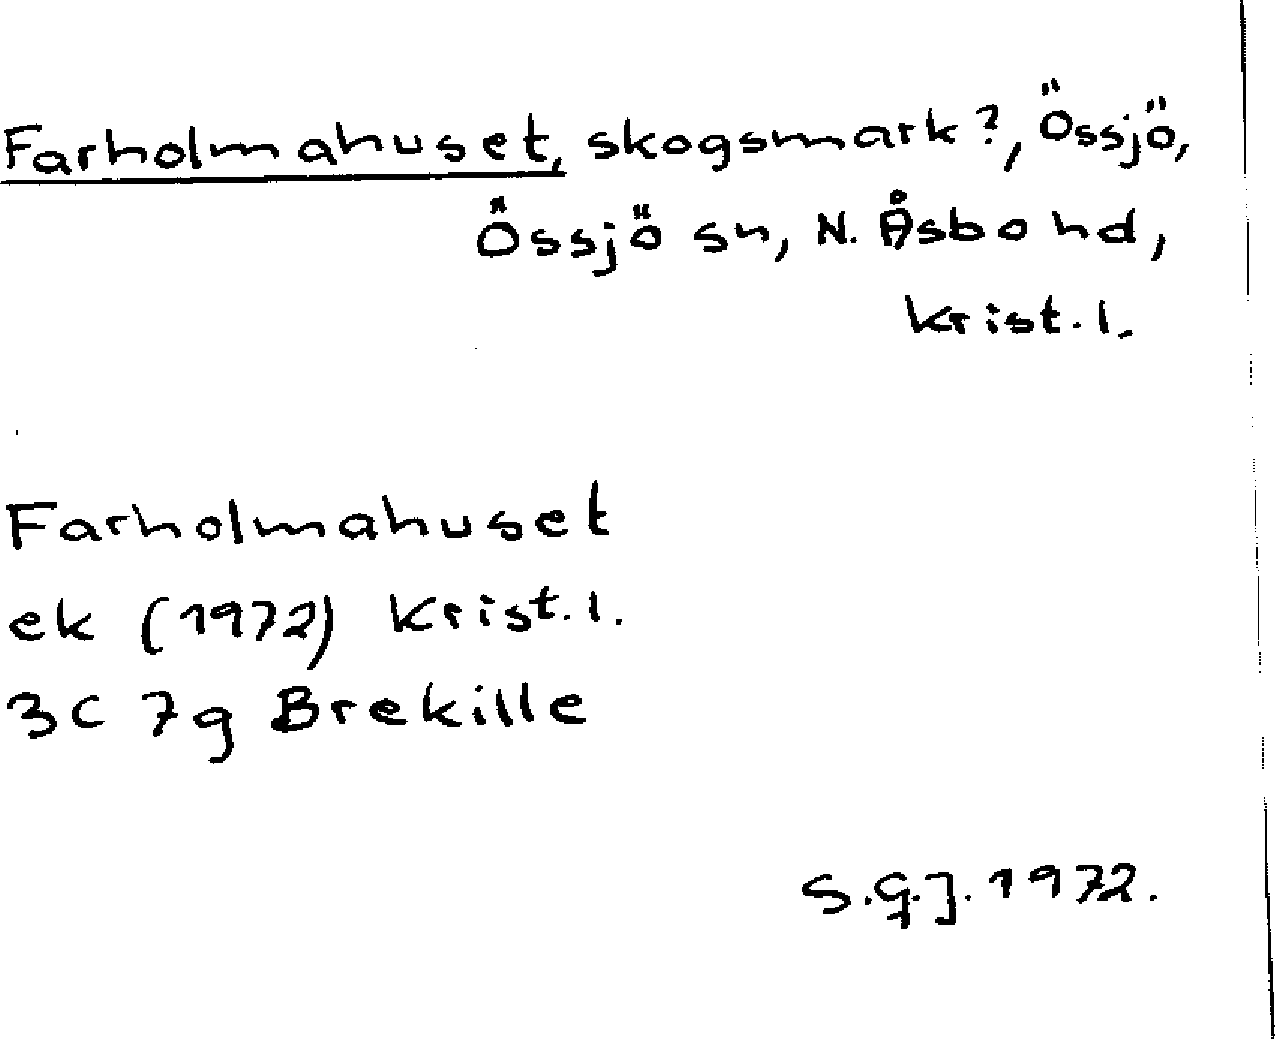 Farholmahuset, skogsmark?, Össjö,
Össjö sn, N. Åsbo hd,
Krist. l.
Farholmahuset
ek (1972) Krist. l.
3C 7g Brekille
S.G.J. 1972.